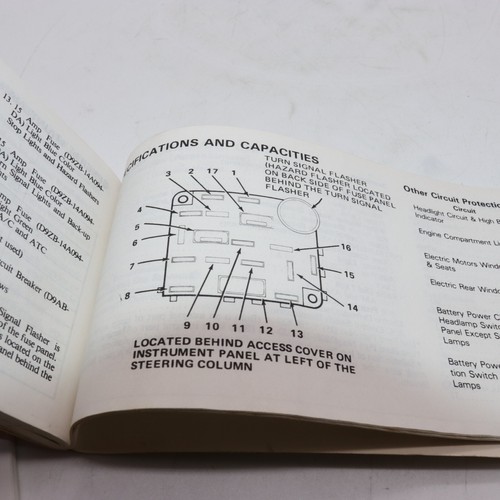 13. 15 Amp Fuse (D9ZB-14A094-
DA) Light Blue Color
Stop Lights and Hazard Flashers
Amp Fuse (D9ZB-14A094-
Light Blue Color
Signal Lights and Back-up
Amp Fuse (D9ZB-14A094-
Light Green
A/C and ATC
used)
Circuit Breaker (D9AB-
Signal Flasher is
of the fuse panel.
is located on the
panel behind the
CIFICATIONS AND CAPACITIES
TURN SIGNAL FLASHER
(HAZARD FLASHER LOCATED
ON BACK SIDE OF FUSE PANEL
BEHIND THE TURN SIGNAL
FLASHER)
3 2 17 1
4
5
6
7
8
9 10 11 12 13
14
15
16
LOCATED BEHIND ACCESS COVER ON
INSTRUMENT PANEL AT LEFT OF THE
STEERING COLUMN
Other Circuit Protection
Circuit
Headlight Circuit & High B
Indicator
Engine Compartment L
Electric Motors Wind
& Seats
Electric Rear Wind
Battery Power C
Headlamp Switc
Panel Except S
Lamps
Battery Power
tion Switch
Lamps